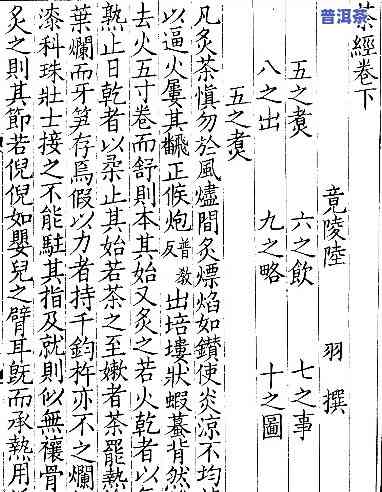 普洱茶
茶經卷下
竟陵陸 羽 撰
五之煑 六之飲 七之事
八之出 九之略 十之圖
五之煑
凡炙茶慎勿於風燼間炙熛焰如鑚使炎凉不均
以逼火屢其飜正候炮普教反出培塿狀蝦蟇背然
去火五寸卷而舒則本其始又炙之若火乾者以
熟止日乾者以柔止其始若茶之至嫩者茶罷熱
葉爛而牙笋存焉假以力者持千鈞杵亦不之爛
漆科珠壯士接之不能駐其指及就則似無禳骨
炙之則其節若倪倪如嬰兒之臂耳既而承熱用